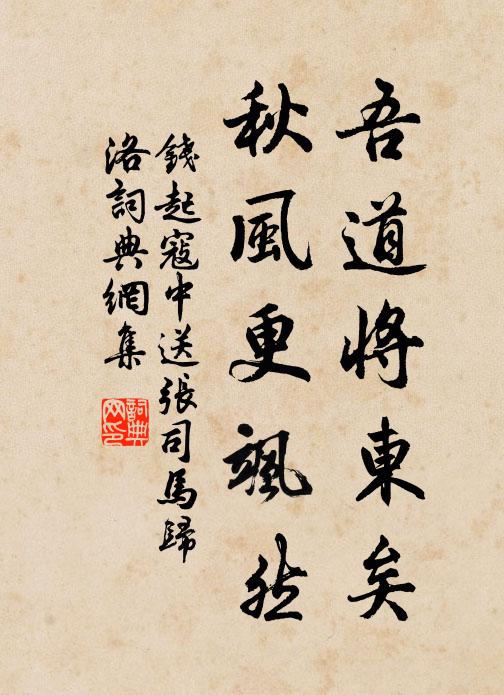 吾道將東矣
秋風更颯然
錢起寇中送張司馬歸
洛詞典網集
詞典
网印